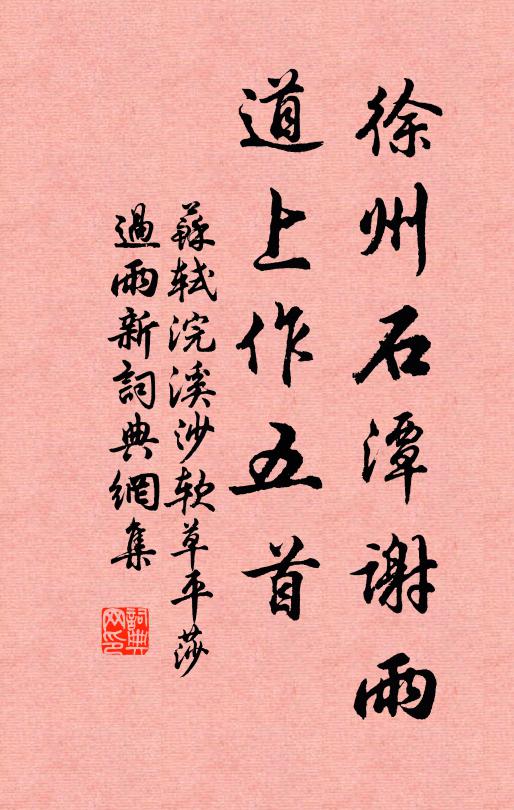 徐州石潭謝雨
道上作五首
蘇軾浣溪沙軟草平莎
過雨新詞典網集
詞典
网印